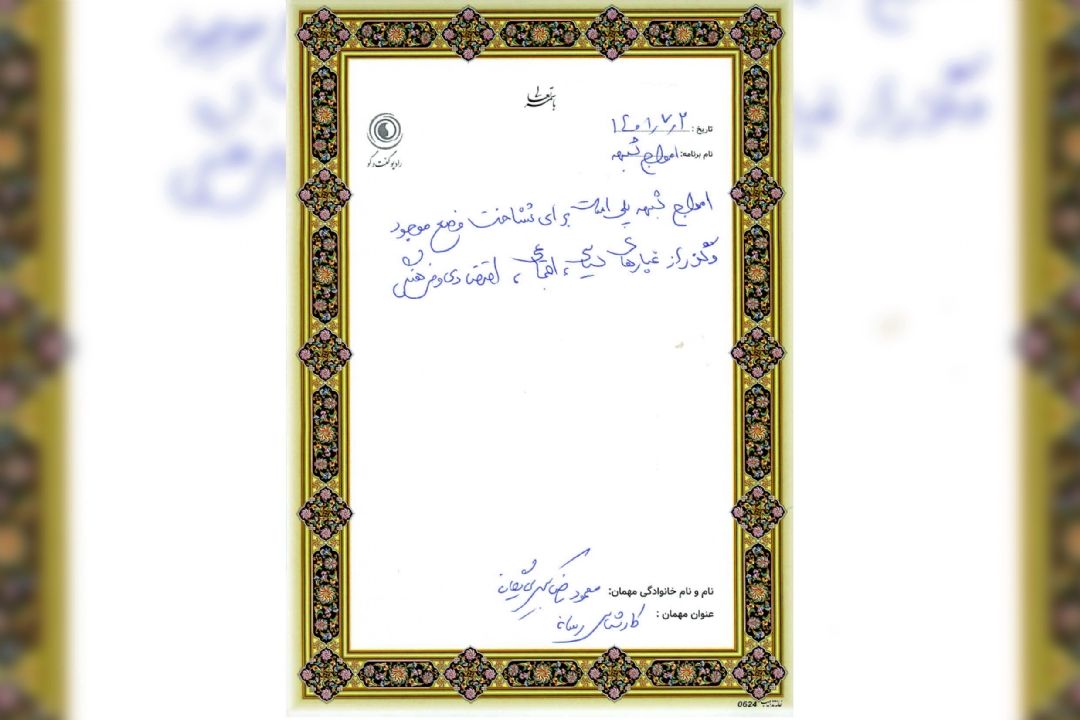 باسمه تعالی
رادیو گفت و گو
تاریخ: ۱۴۰۱٫۷٫۲
نام برنامه: امواج شبهه
امواج شبهه پلی است برای شناخت وضع موجود
و گذر از غبارهای سیاسی، اجتماعی، اقتصادی و فرهنگی
نام و نام خانوادگی مهمان: محمود
عنوان مهمان: کارشناس رسانه
0624